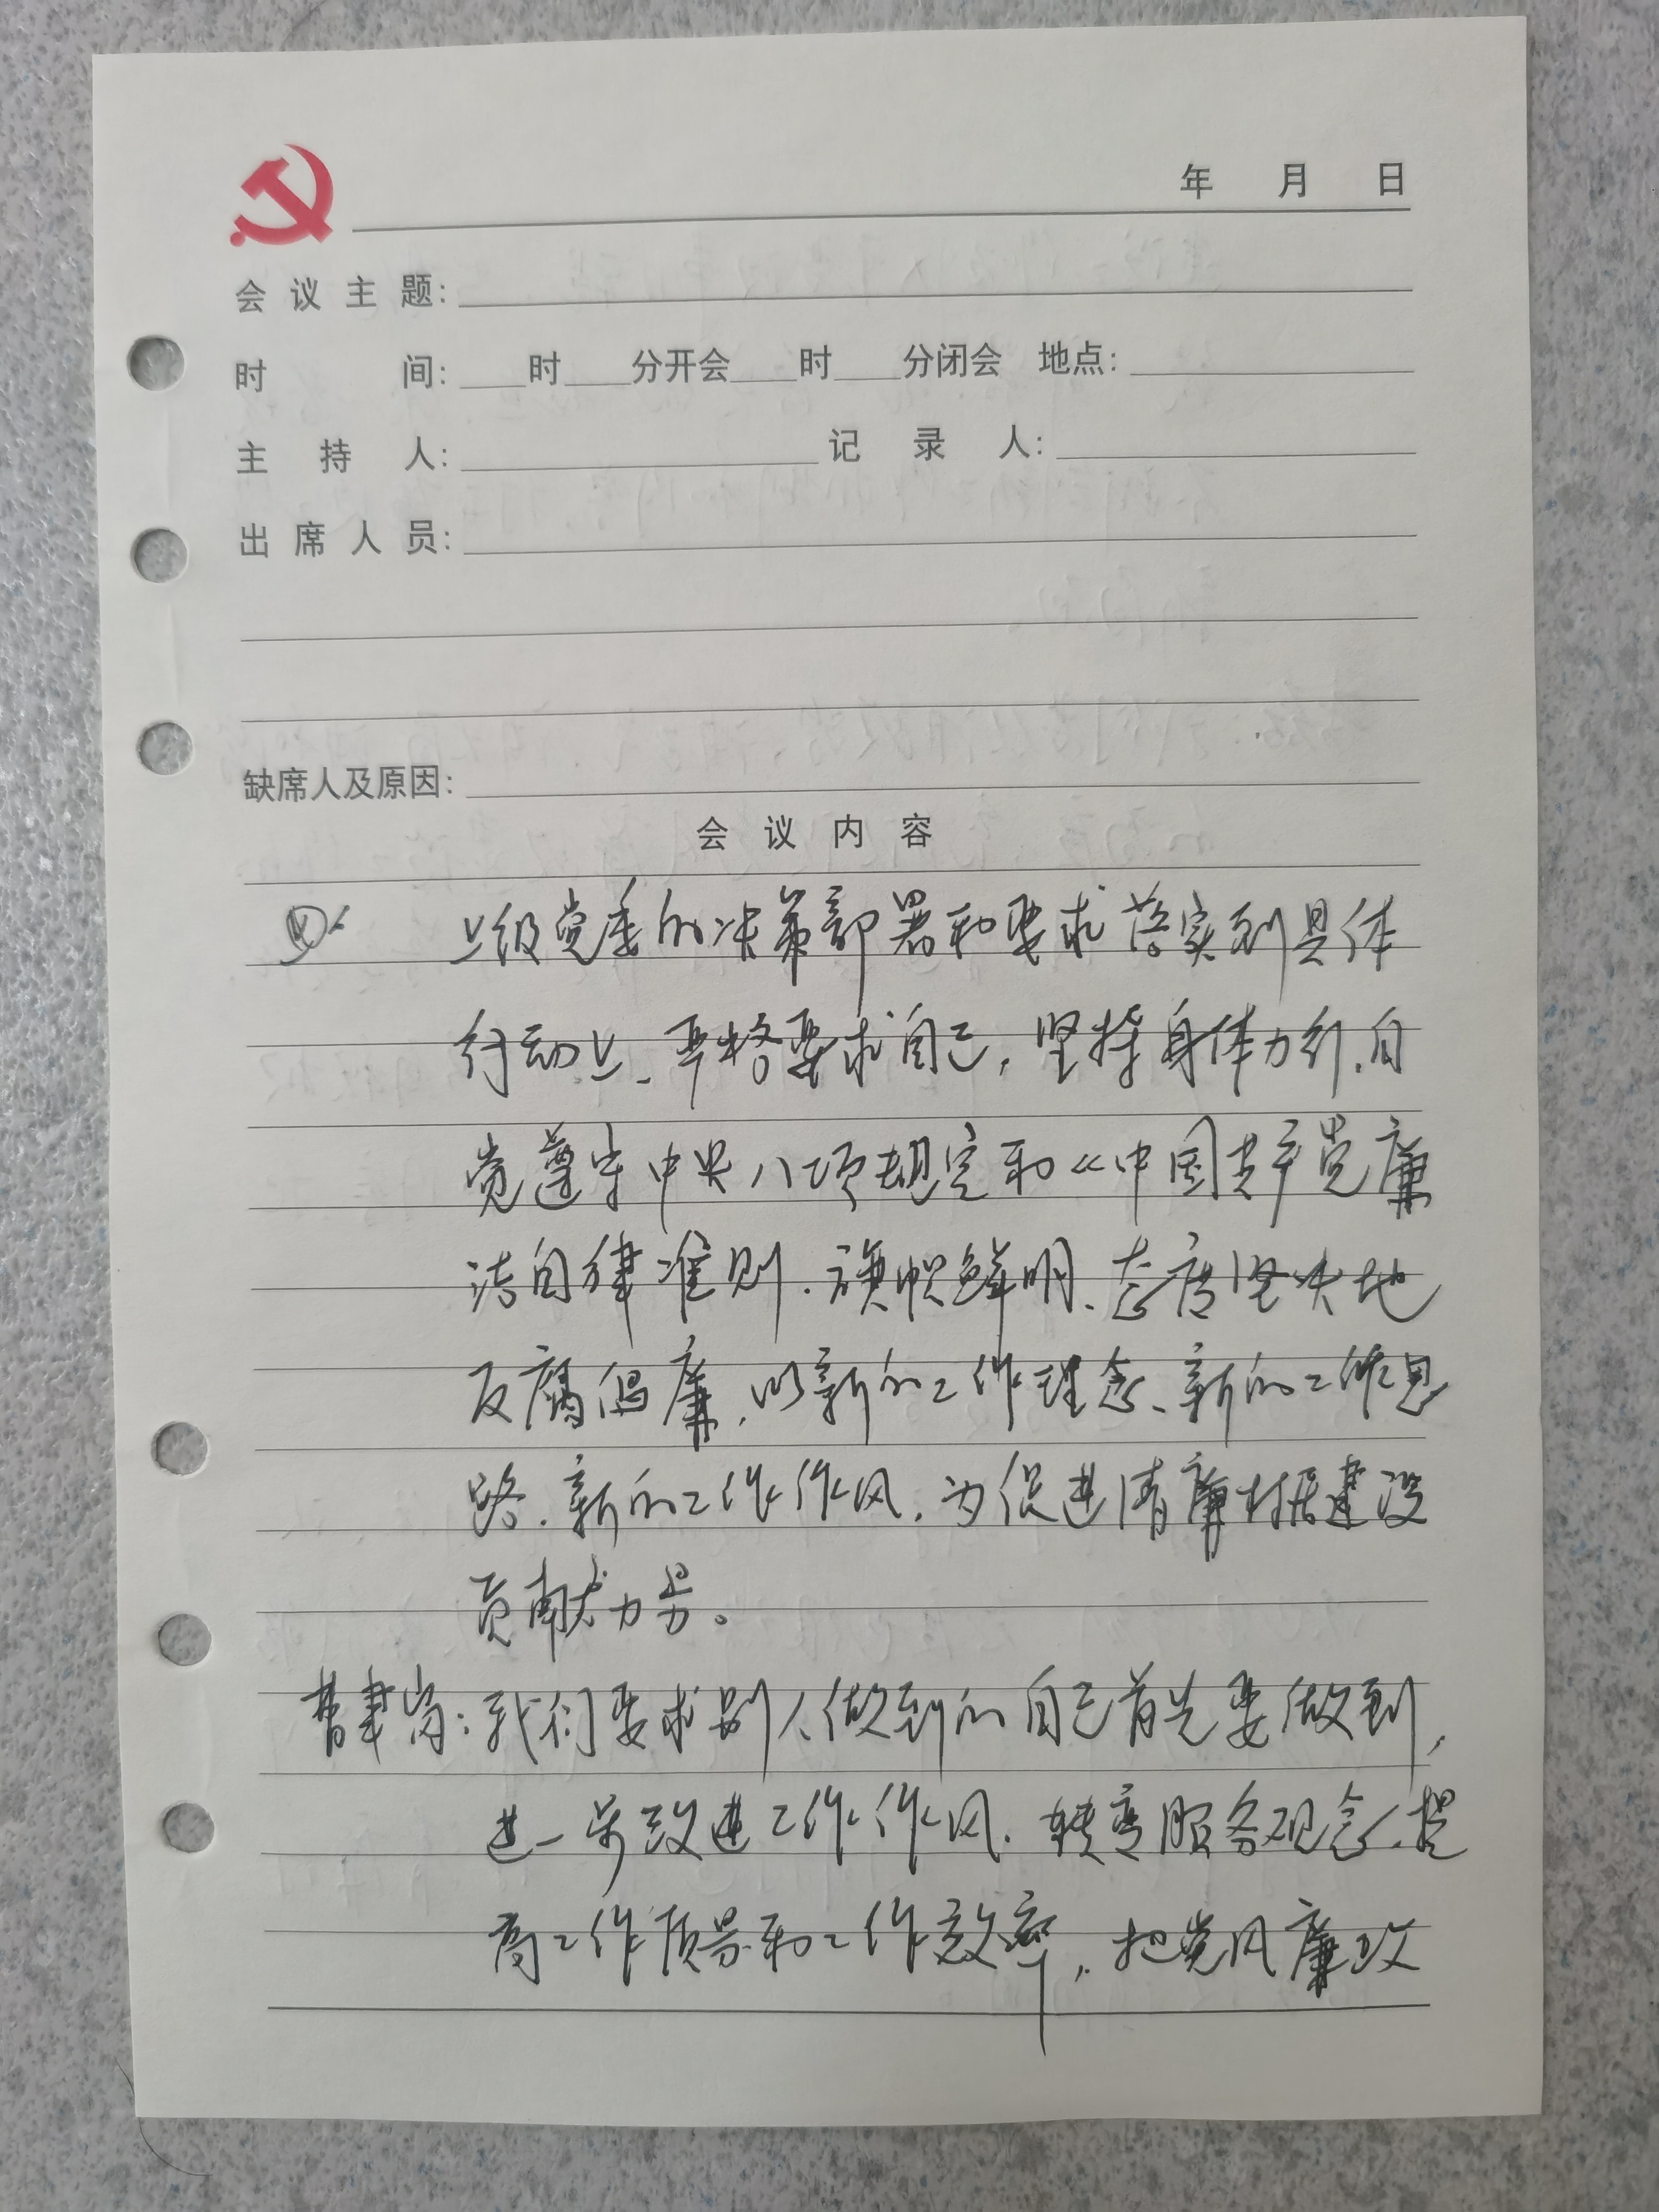 年 月 日
会议主题：
时间：____时____分开会____时____分闭会 地点：
主持人： 记录人：
出席人员：
缺席人及原因：
会议内容
上级党委的决策部署和要求落实到具体
行动上、严格要求自己，坚持身体力行，自
觉遵守中央八项规定和《中国共产党廉
洁自律准则，旗帜鲜明、态度坚决地
反腐倡廉，以新的工作理念、新的工作思
路、新的工作作风，为促进清廉村居建设
贡献力量。
我们要求别人做到的自己首先要做到，
进一步改进工作作风，转变服务观念，提
高工作质量和工作效率，把党风廉政